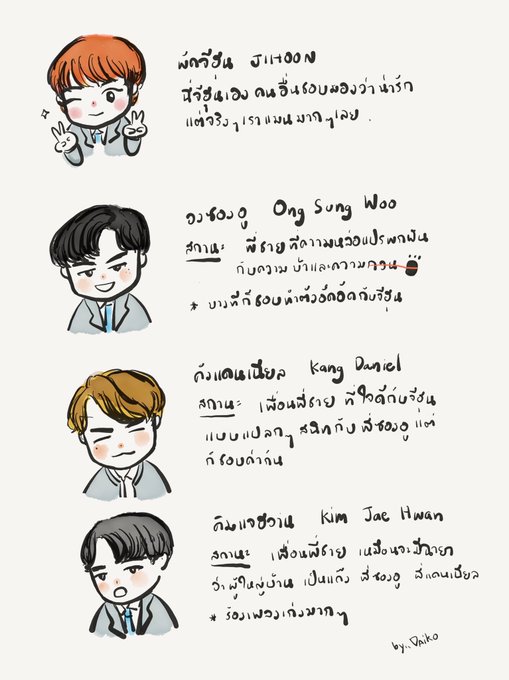 พัคจีฮุน JIHOON
นี่จีฮุนเอง คนอื่นชอบมองว่าน่ารัก
แต่จริงๆเราแมนมากๆเลย.
องซองอู Ong Sung Woo
สถานะ พี่ชายที่ความหล่อแปรผกผัน
กับความบ้าและความกวน
* บางทีก็ชอบทำตัวอึดอัดกับจีฮุน
คังแดเนียล Kang Daniel
สถานะ เพื่อนพี่ชาย ที่ใจดีกับจีฮุน
แบบแปลกๆ สนิทกับ พี่ซองอู แต่
ก็ชอบด่ากัน
คิมแจฮวาน Kim Jae Hwan
สถานะ เพื่อนพี่ชาย เหมือนจะมีฉายา
ว่าผู้ใหญ่บ้าน เป็นแก๊ง พี่ซองอู พี่แดเนียล
* ร้องเพลงเก่งมากๆ
by.. DAIKO